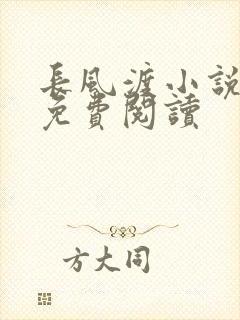 長風渡小說
免費閱讀
方大同